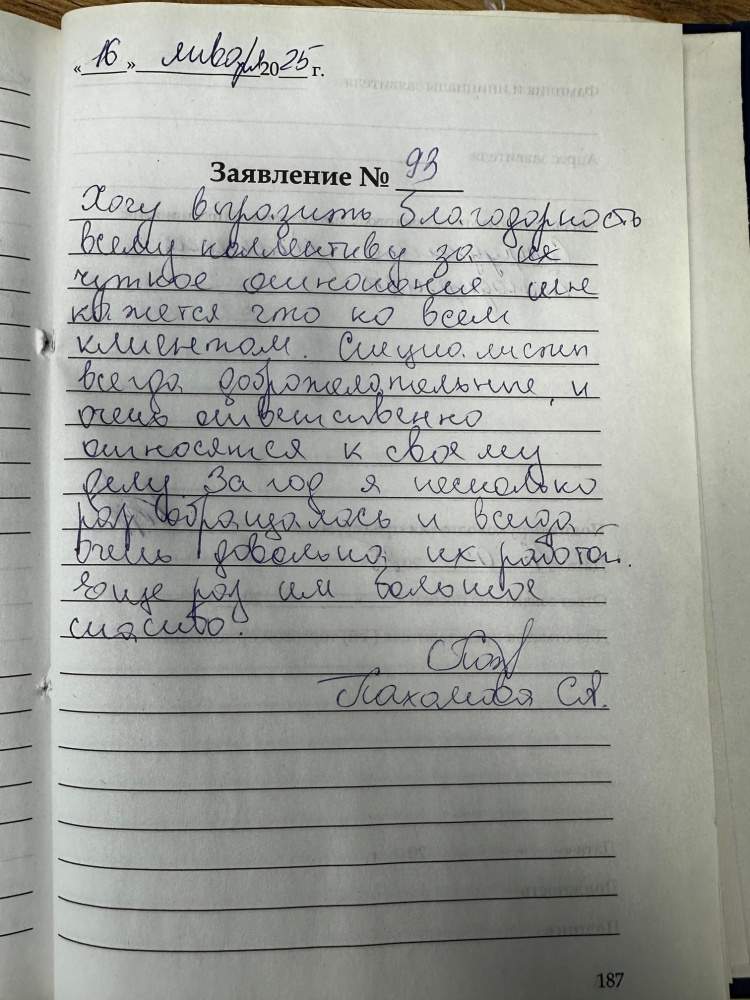 «16» января 2025 г.
Заявление № 93
Хочу выразить благодарность
всему коллективу за их
чуткое отношение мне
кажется что ко всем
клиентам. Специалисты
всегда доброжелательные, и
очень ответственно
относятся к своему
делу. За год я несколько
раз обращалась и всегда
очень довольна их работой.
Еще раз им большое
спасибо!
Пахомова С.А.
187